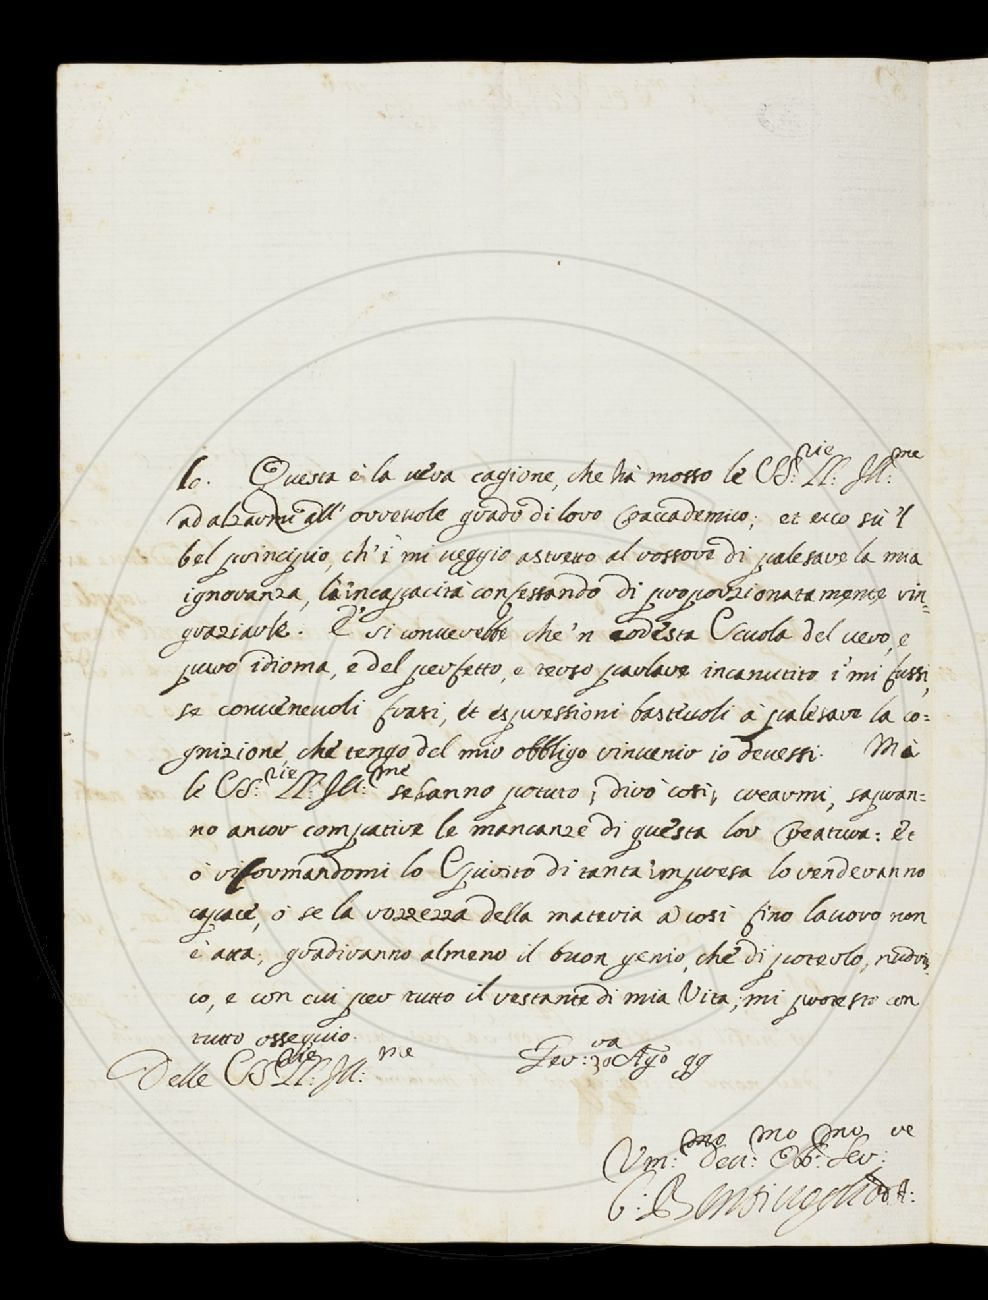 lo. Questa è la vera cagione, che hà mosso le SS.rie LL: Ill:me
ad alzarmi all' orrevole grado di loro Paccademico; et ecco sù 'l
bel principio, ch' i' mi veggio astretto al rossore di palesare la mia
ignoranza, l'incapacità confessando di proporzionatamente rin=
graziarle. E' si converebbe che 'n codesta Scuola del vero, e
puro idioma, e del perfetto, e terso parlare incanutito i' mi fussi,
se convenevoli frasi, et espressioni bastevoli à palesare la co=
gnizione, che tengo del mio obbligo rinvenir io devessi. Mà
le SS:rie LL: Ill:me se hanno potuto, dirò così, crearmi, sapran=
no ancor compatire le mancanze di questa lor Creatura: Et
ò riformandomi lo Spirito di tanta impresa lo renderanno
capace, ò se la rozzezza della materia à così fino lavoro non
è atta, gradiranno almeno il buon genio, che di poterlo, nudris=
co, e con cui per tutto il restante di mia Vita, mi protesto con
tutto ossequio.
Delle SS:rie LL: Ill:me Fer:ra 30 Agto 99
Um:mo Dev:mo Obb:mo Ser:re
C: Bentivoglio d'A: